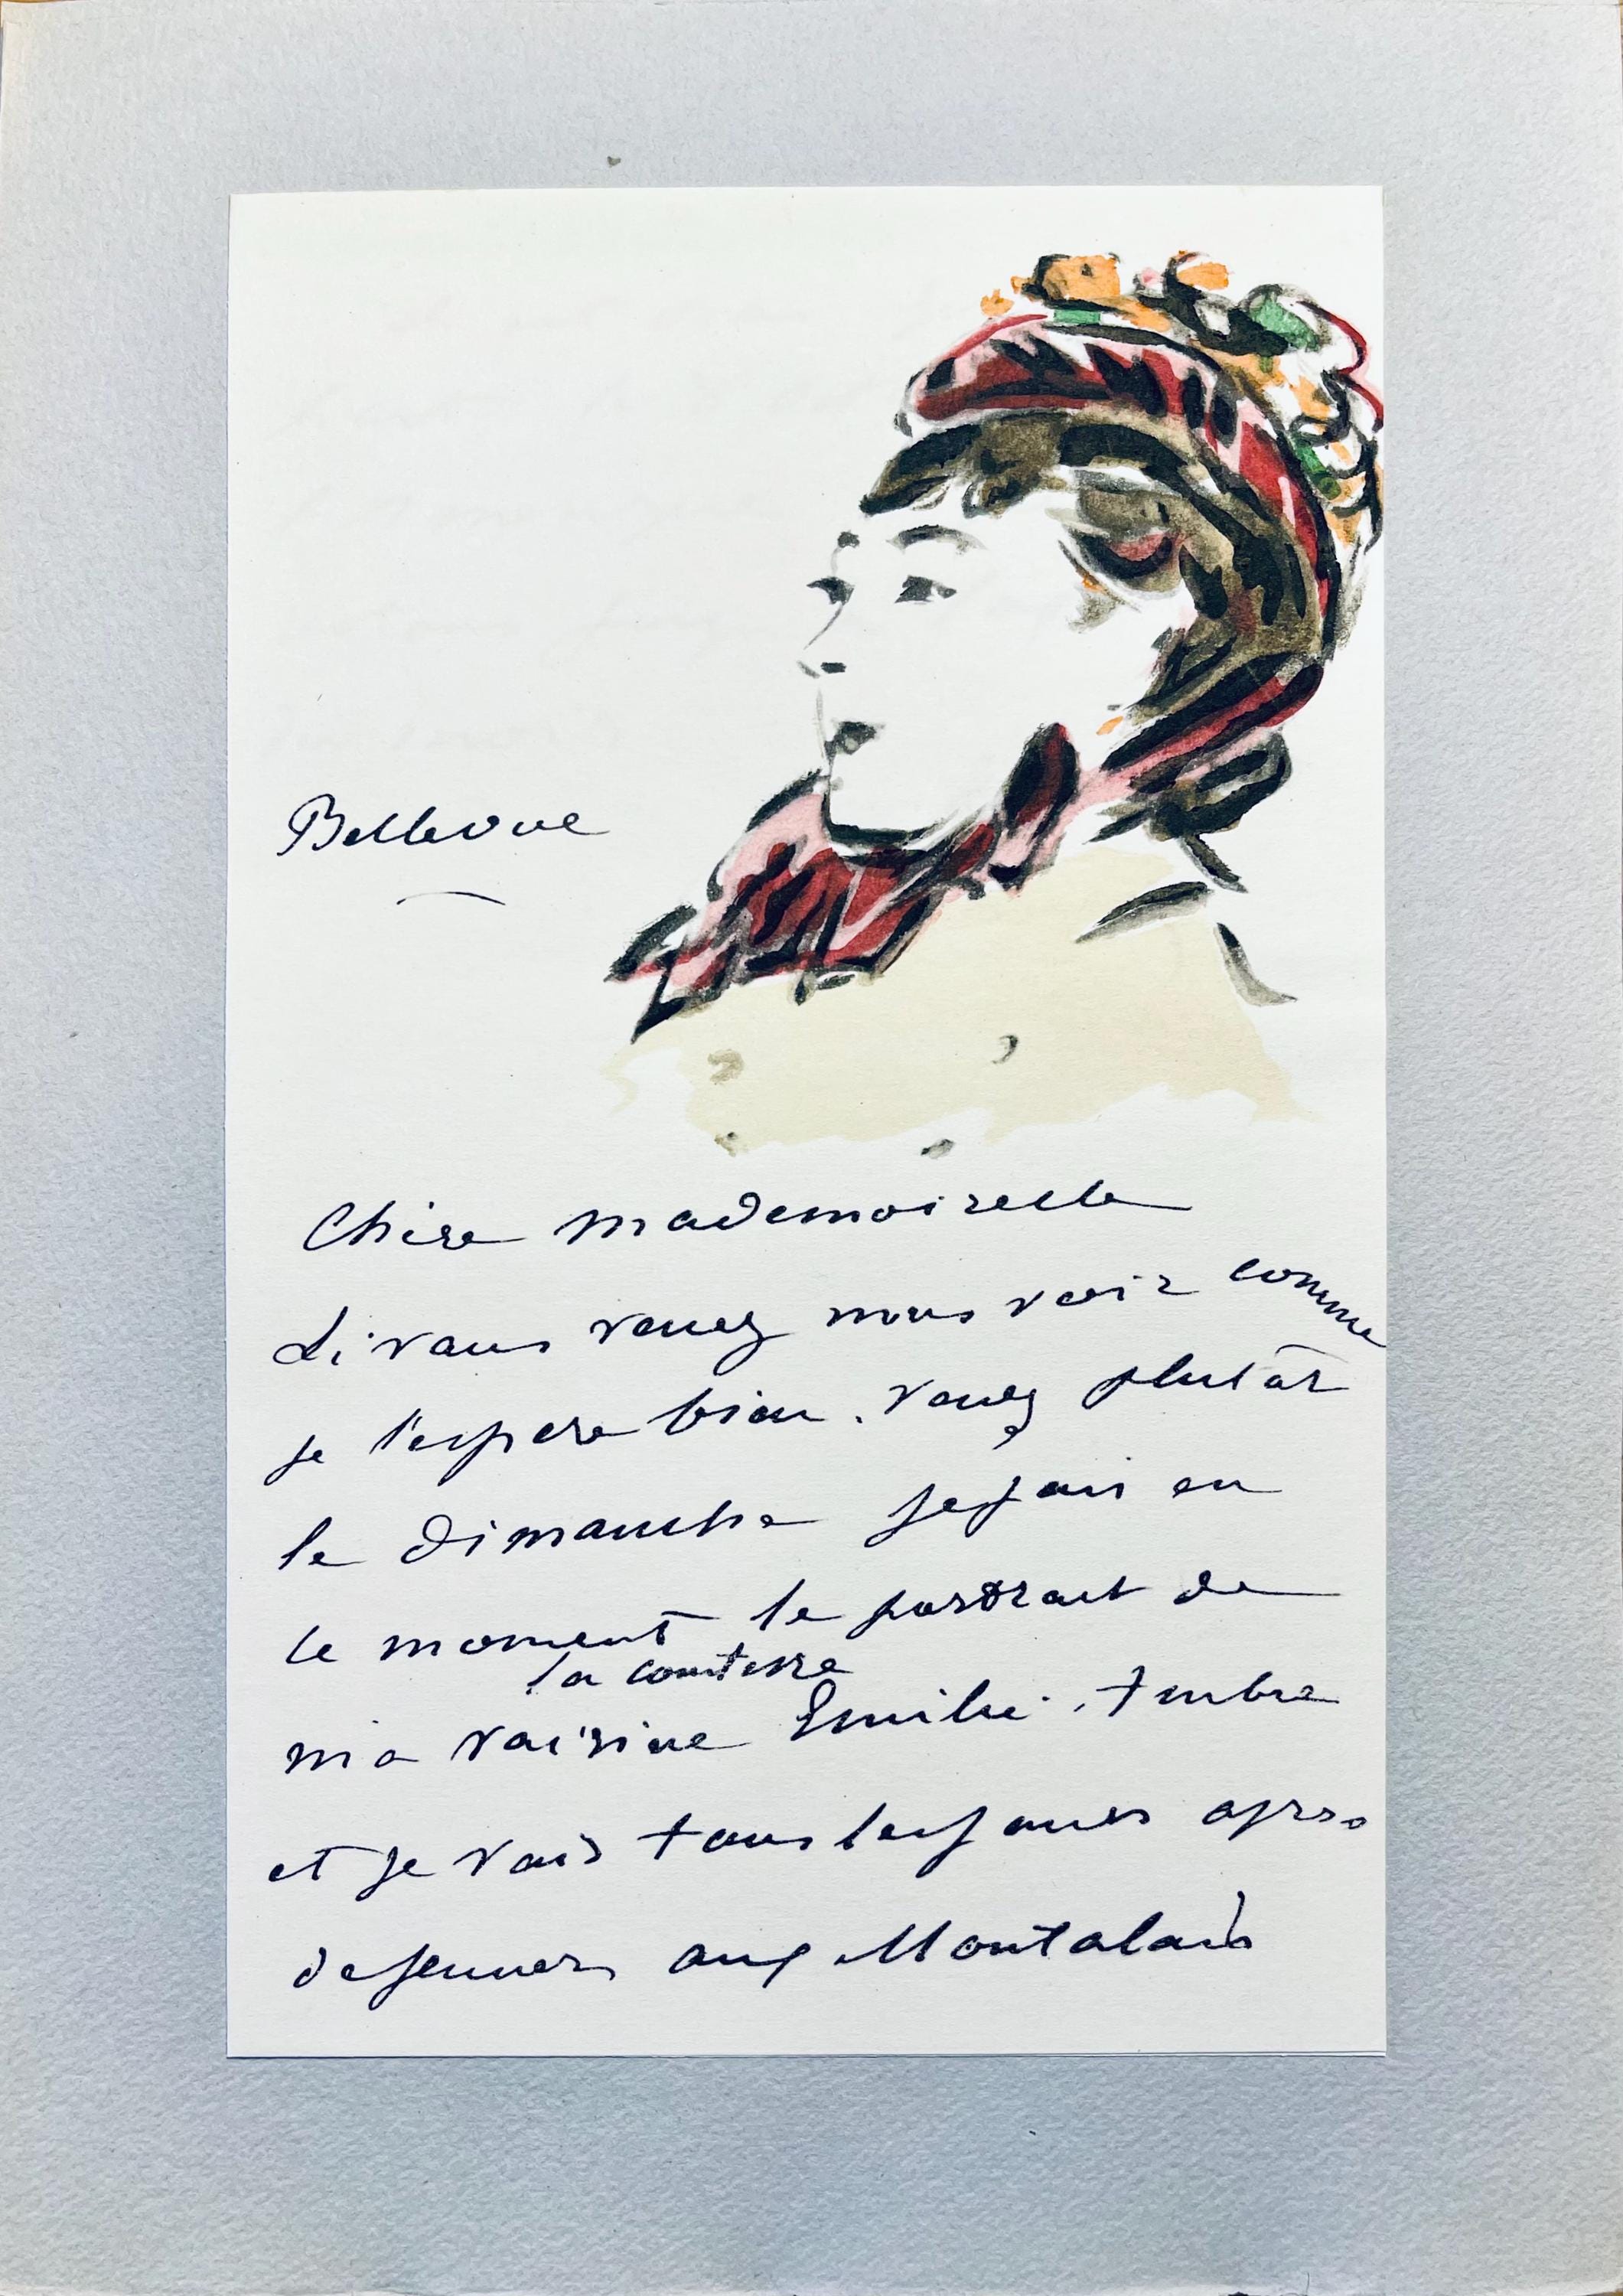 Bellevue
Chère mademoiselle
Si vous venez nous voir comme
je l'espere bien. Venez plutôt
le dimanche je fais en
ce moment le portrait de
la comtesse
ma voisine Emilie Ambre
et je vais tous les jours apres
dejeuner aux Montalais